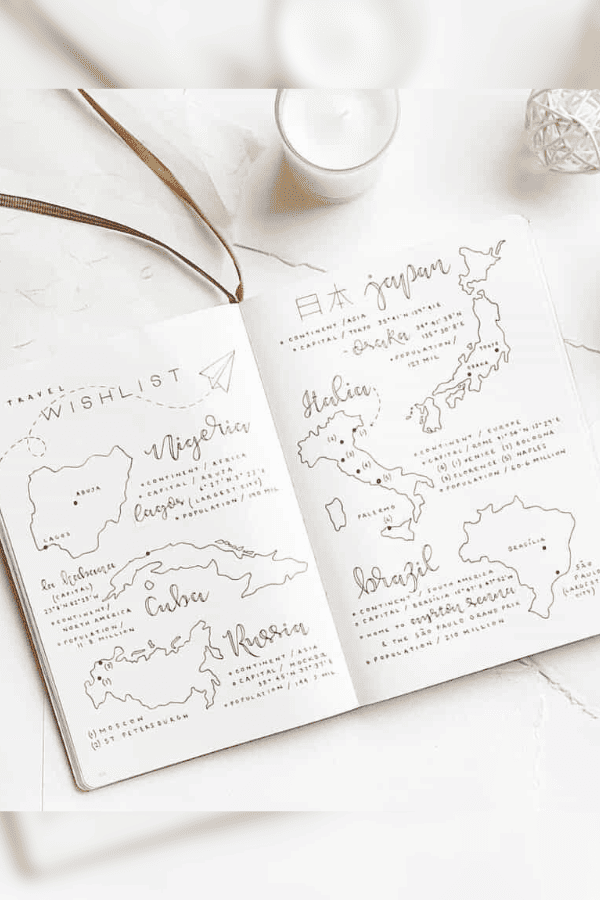 TRAVEL
WISHLIST
Nigeria
• CONTINENT / AFRICA
• CAPITAL / ABUJA
Lagos (LARGEST CITY)
• POPULATION / 190 MIL
ABUJA
LAGOS
la habana
(CAPITAL)
• CONTINENT /
NORTH AMERICA
• POPULATION /
11.5 MILLION
Cuba
Russia
• CONTINENT / ASIA
• CAPITAL / MOSCOW
• POPULATION / 144.3 MIL
(1) MOSCOW
(2) ST PETERSBURGH
日本 japan
• CONTINENT / ASIA
• CAPITAL / TOKYO
- osaka
• POPULATION /
127 MIL
Italia
• CONTINENT / EUROPE
• CAPITAL / ROME
(4) (1) VENICE (2) BOLOGNA
(3) FLORENCE (5) NAPLES
• POPULATION / 60.6 MILLION
PALERMO
brazil
• CONTINENT / SOUTH AMERICA
• CAPITAL / BRASILIA
• HOME TO ayrton senna
& THE SÃO PAULO GRAND PRIX
• POPULATION / 210 MILLION
BRASÍLIA
SÃO
PAULO
(LARGEST
CITY)